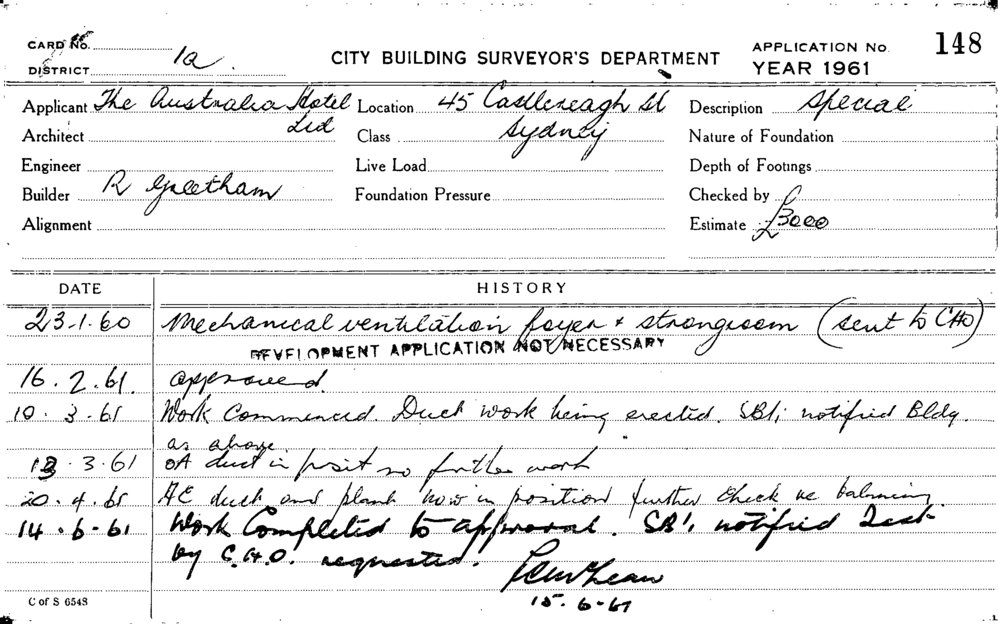 CARD No.
DISTRICT 1a
CITY BUILDING SURVEYOR'S DEPARTMENT
APPLICATION No. 148
YEAR 1961
Applicant The Australia Hotel Ltd
Location 45 Castlereagh St Sydney
Description Special
Architect
Class
Nature of Foundation
Engineer
Live Load
Depth of Footings
Builder R Greetham
Foundation Pressure
Checked by
Alignment
Estimate £3000
DATE HISTORY
23.1.60 Mechanical ventilation foyer & strongroom (sent to CHO)
DEVELOPMENT APPLICATION NOT NECESSARY
16.2.61. approved
10.3.61 Work Commenced. Duct work being erected. SBI; notified Bldg.
as above
13.3.61 OA duct in posit no further work
20.4.61 AE duct and plant now in position further check re balancing
14.6.61 Work Completed to approval. SBI, notified Test
by C.H.O. requested.
15.6.61
C of S 6548